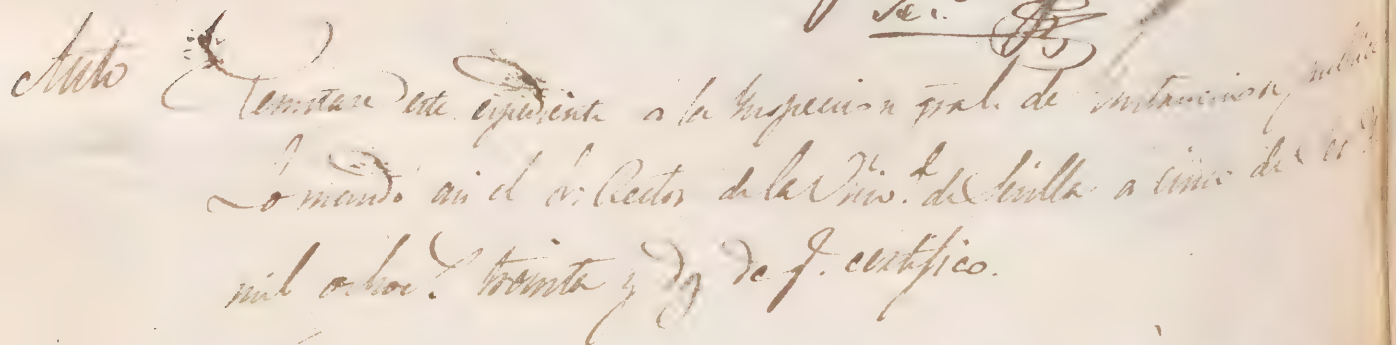 Sec.º
Auto
Remitase este expediente a la Inspeccion gral. de instruccion publica
Lo mandó asi el Sr. Rector de la Univ.d de Sevilla a cinco de
mil ochoc.s treinta y dos de q. certifico.